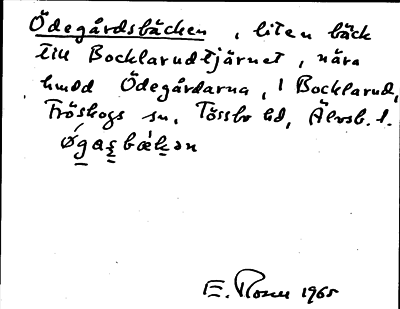 Ödegårdsbäcken, liten bäck
till Bocklarudtjärnet, nära
hmdd Ödegårdarna, i Bocklarud,
Fröskogs sn, Tössbo hd, Älvsb. l.
E. Rosen 1965